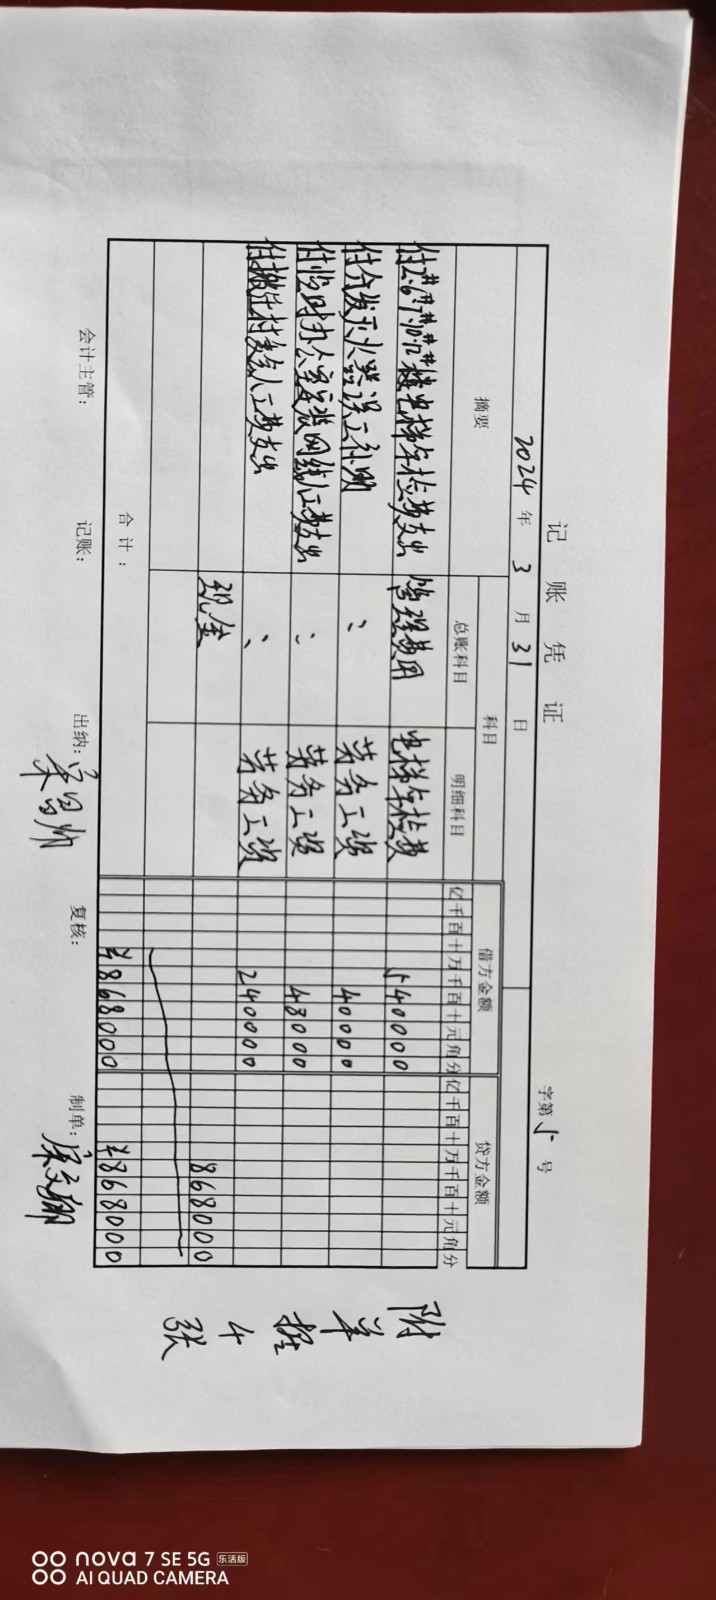 记账凭证
2024年3月31日 字第5号
摘要 科目 借方金额 贷方金额
总账科目 明细科目 亿千百十万千百十元角分 亿千百十万千百十元角分
付2#6#7#10#12#楼电梯年检费支出 管理费用 电梯年检费 540000
付分发灭火器误工补助 〃 劳务工资 40000
付临时办公室安装网线人工费支出 〃 劳务工资 48000
付搬迁村委会人工费支出 〃 劳务工资 240000
现金 868000
合计: ¥868000 ¥868000
会计主管: 记账: 出纳: 复核: 制单:
附单据4张
nova 7 SE 5G 乐活版
AI QUAD CAMERA